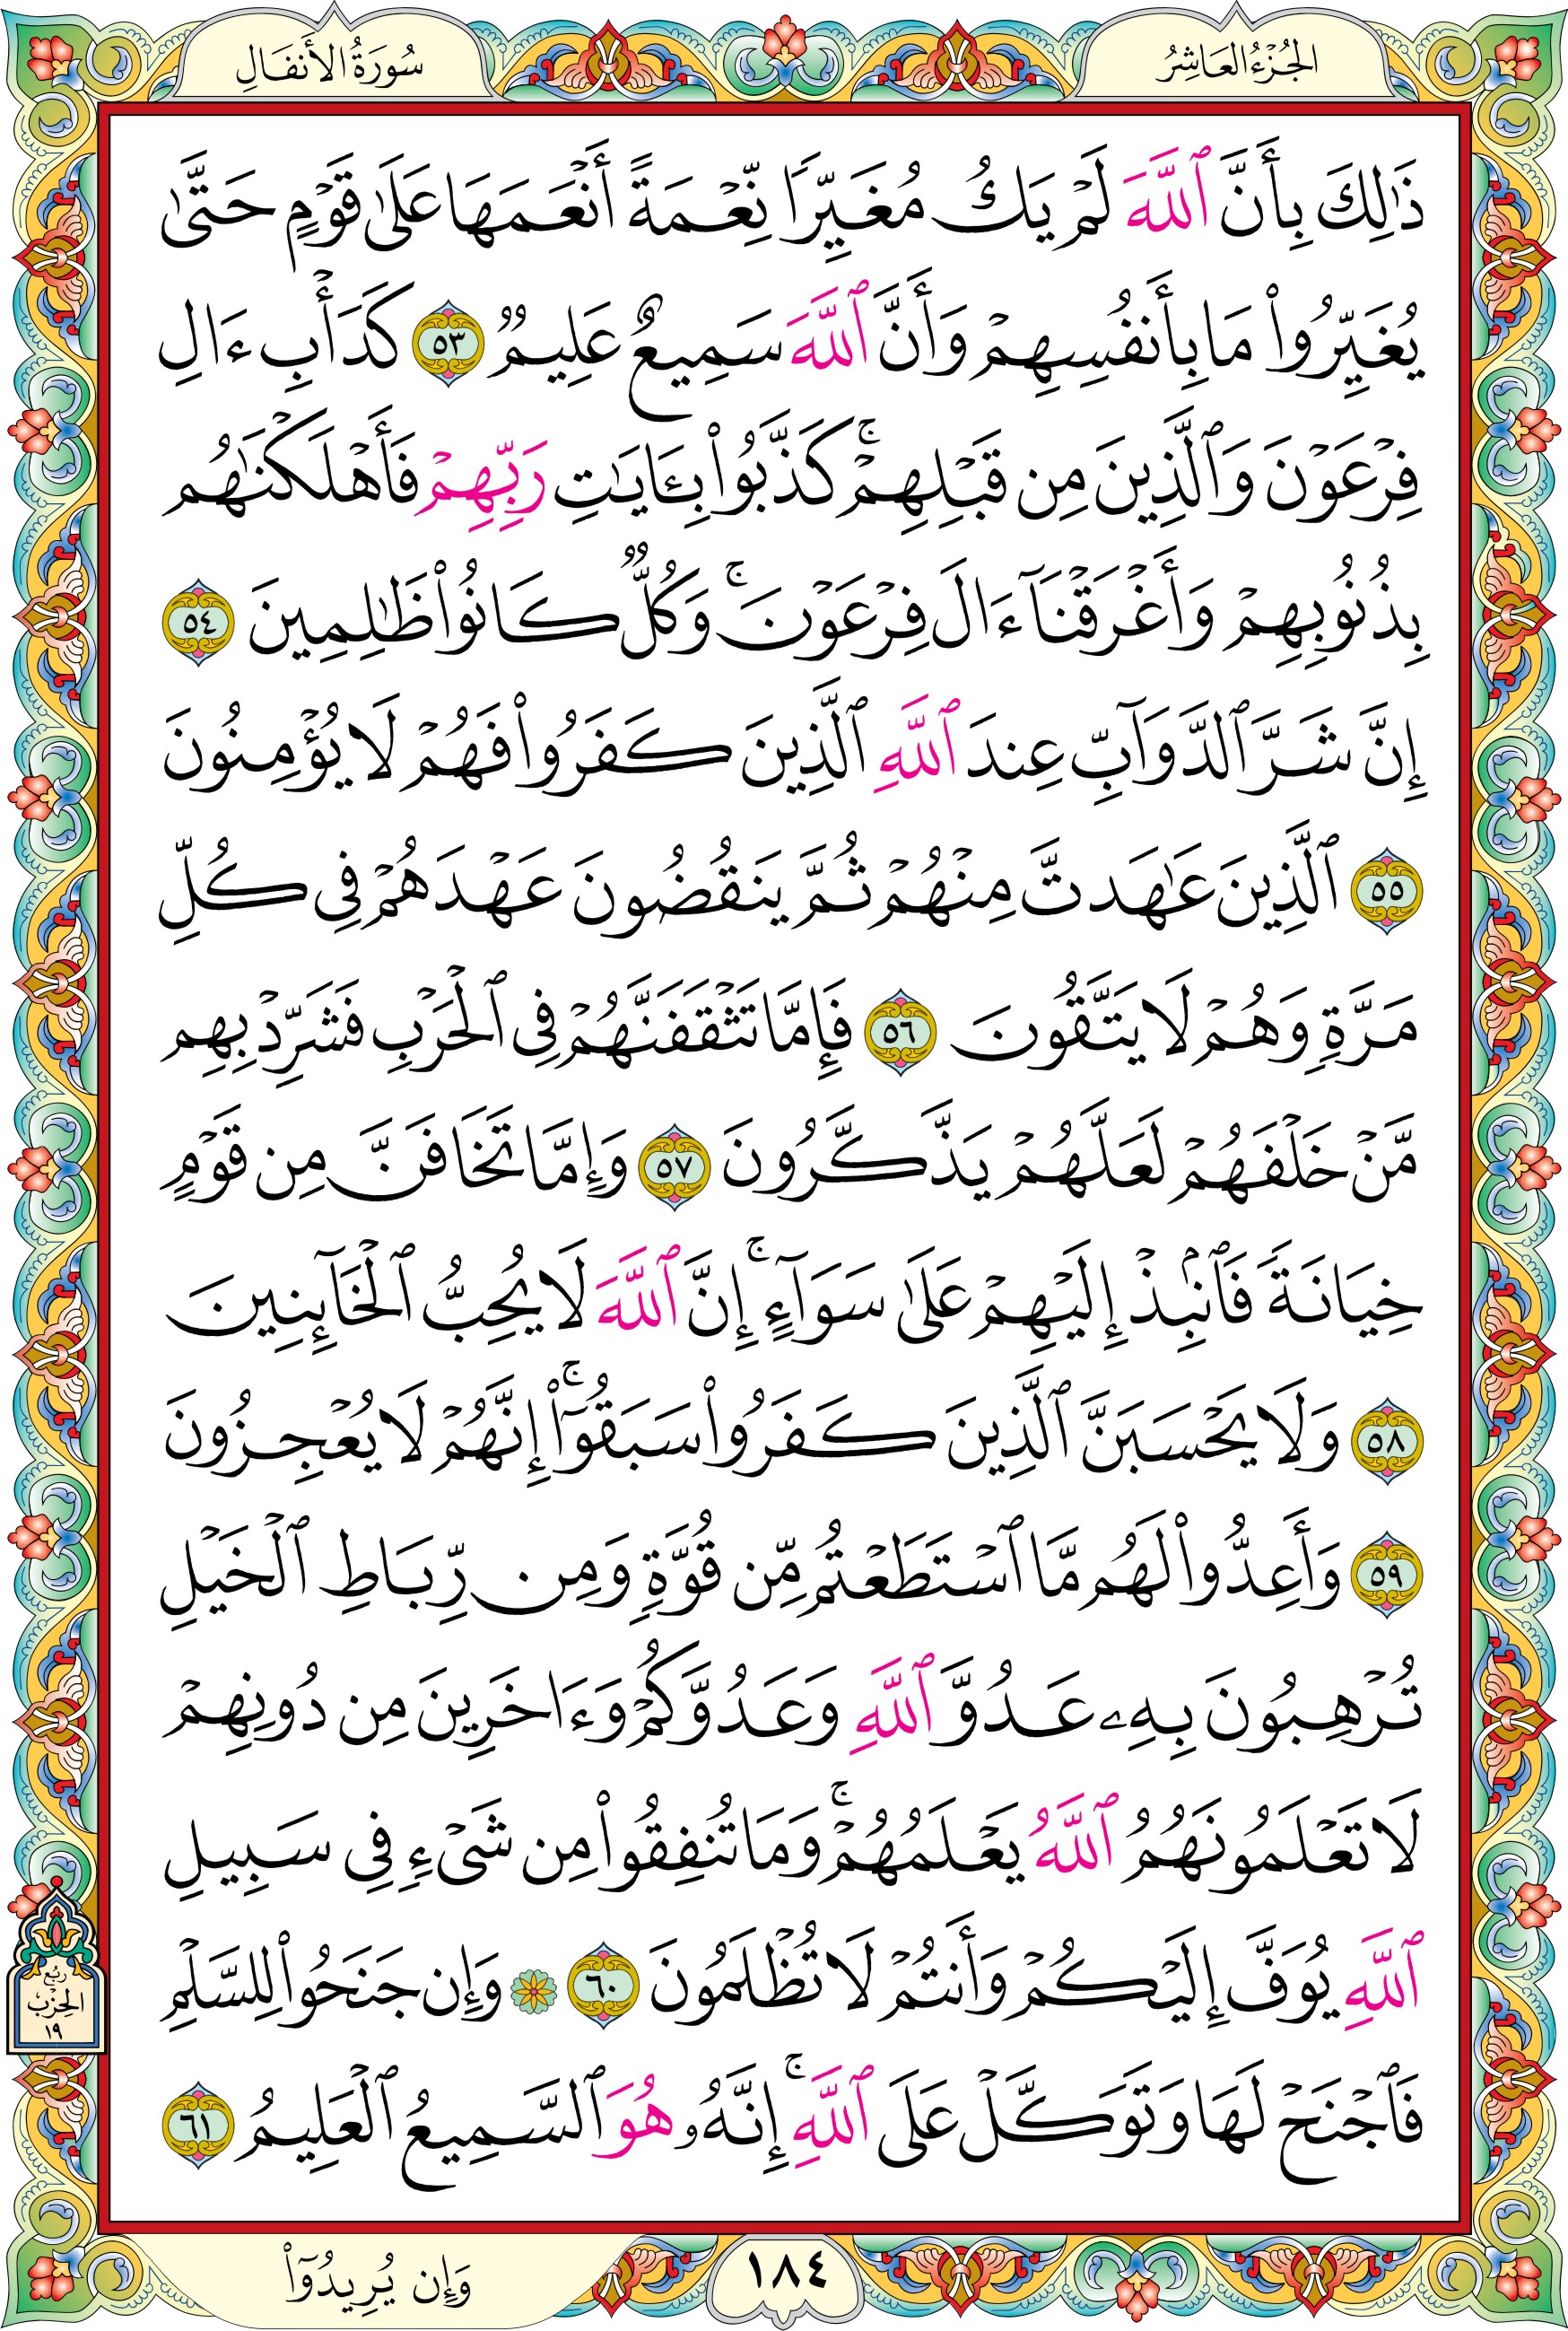 الجُزْءُ العَاشِرُ
سُورَةُ الأَنفَالِ
ذَٰلِكَ بِأَنَّ ٱللَّهَ لَمْ يَكُ مُغَيِّرًا نِّعْمَةً أَنْعَمَهَا عَلَىٰ قَوْمٍ حَتَّىٰ
يُغَيِّرُوا۟ مَا بِأَنفُسِهِمْ وَأَنَّ ٱللَّهَ سَمِيعٌ عَلِيمٌ ٥٣ كَدَأْبِ ءَالِ
فِرْعَوْنَ وَٱلَّذِينَ مِن قَبْلِهِمْ ۚ كَذَّبُوا۟ بِـَٔايَـٰتِ رَبِّهِمْ فَأَهْلَكْنَـٰهُم
بِذُنُوبِهِمْ وَأَغْرَقْنَآ ءَالَ فِرْعَوْنَ ۚ وَكُلٌّ كَانُوا۟ ظَـٰلِمِينَ ٥٤
إِنَّ شَرَّ ٱلدَّوَآبِّ عِندَ ٱللَّهِ ٱلَّذِينَ كَفَرُوا۟ فَهُمْ لَا يُؤْمِنُونَ
٥٥ ٱلَّذِينَ عَـٰهَدتَّ مِنْهُمْ ثُمَّ يَنقُضُونَ عَهْدَهُمْ فِى كُلِّ
مَرَّةٍ وَهُمْ لَا يَتَّقُونَ ٥٦ فَإِمَّا تَثْقَفَنَّهُمْ فِى ٱلْحَرْبِ فَشَرِّدْ بِهِم
مَّنْ خَلْفَهُمْ لَعَلَّهُمْ يَذَّكَّرُونَ ٥٧ وَإِمَّا تَخَافَنَّ مِن قَوْمٍ
خِيَانَةً فَٱنۢبِذْ إِلَيْهِمْ عَلَىٰ سَوَآءٍ ۚ إِنَّ ٱللَّهَ لَا يُحِبُّ ٱلْخَآئِنِينَ
٥٨ وَلَا يَحْسَبَنَّ ٱلَّذِينَ كَفَرُوا۟ سَبَقُوٓا۟ ۚ إِنَّهُمْ لَا يُعْجِزُونَ
٥٩ وَأَعِدُّوا۟ لَهُم مَّا ٱسْتَطَعْتُم مِّن قُوَّةٍ وَمِن رِّبَاطِ ٱلْخَيْلِ
تُرْهِبُونَ بِهِۦ عَدُوَّ ٱللَّهِ وَعَدُوَّكُمْ وَءَاخَرِينَ مِن دُونِهِمْ
لَا تَعْلَمُونَهُمُ ٱللَّهُ يَعْلَمُهُمْ ۚ وَمَا تُنفِقُوا۟ مِن شَىْءٍ فِى سَبِيلِ
ٱللَّهِ يُوَفَّ إِلَيْكُمْ وَأَنتُمْ لَا تُظْلَمُونَ ٦٠ وَإِن جَنَحُوا۟ لِلسَّلْمِ
فَٱجْنَحْ لَهَا وَتَوَكَّلْ عَلَى ٱللَّهِ ۚ إِنَّهُۥ هُوَ ٱلسَّمِيعُ ٱلْعَلِيمُ ٦١
ربع
الحِزْب
١٩
١٨٤
وَإِن يُرِيدُوٓا۟